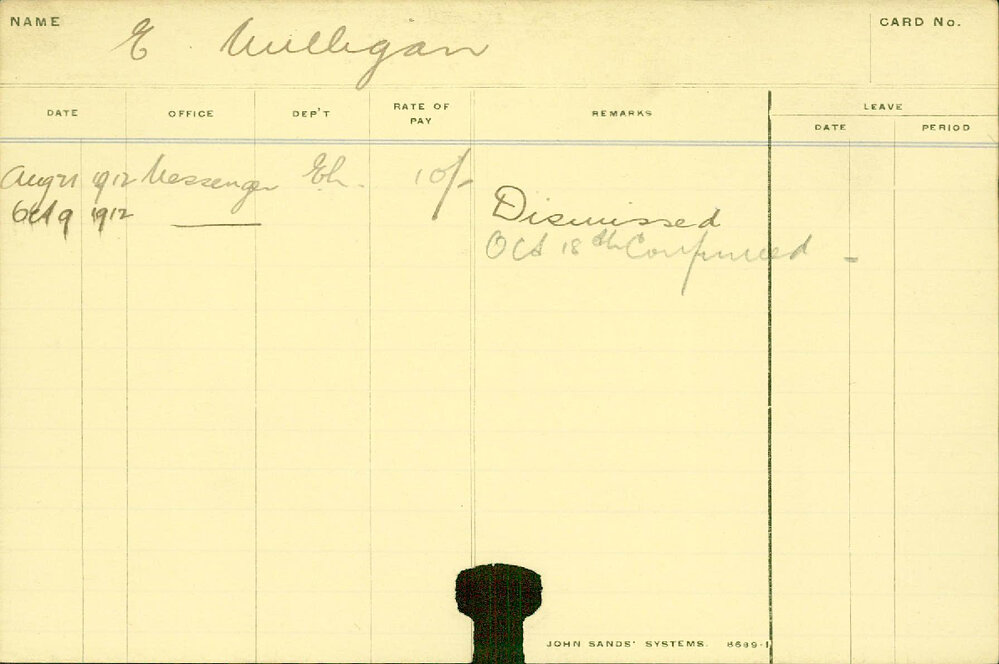 NAME E Mulligan CARD No.
DATE OFFICE DEP'T RATE OF PAY REMARKS LEAVE
DATE PERIOD
Aug 21 1912 Messenger Eh. 10/-
Oct 9 1912 —— Dismissed
Oct 18th Confirmed -
JOHN SANDS' SYSTEMS. 8689-1